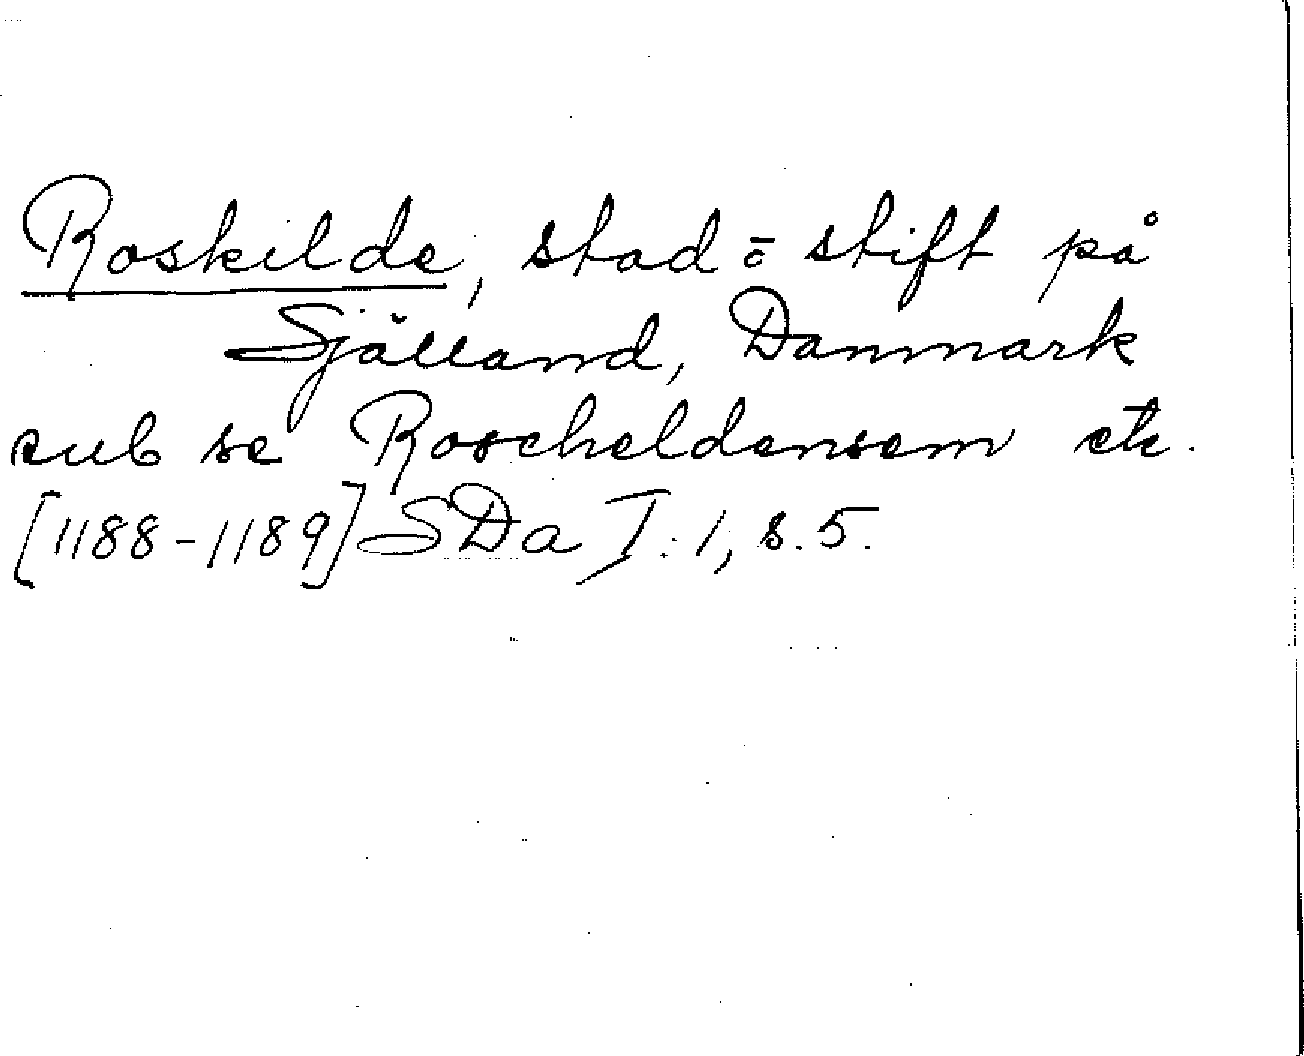 Roskilde, stad o stift på
Själland, Danmark
sub se Roscheldensem etc.
[1188-1189] SDa I:1, s. 5.